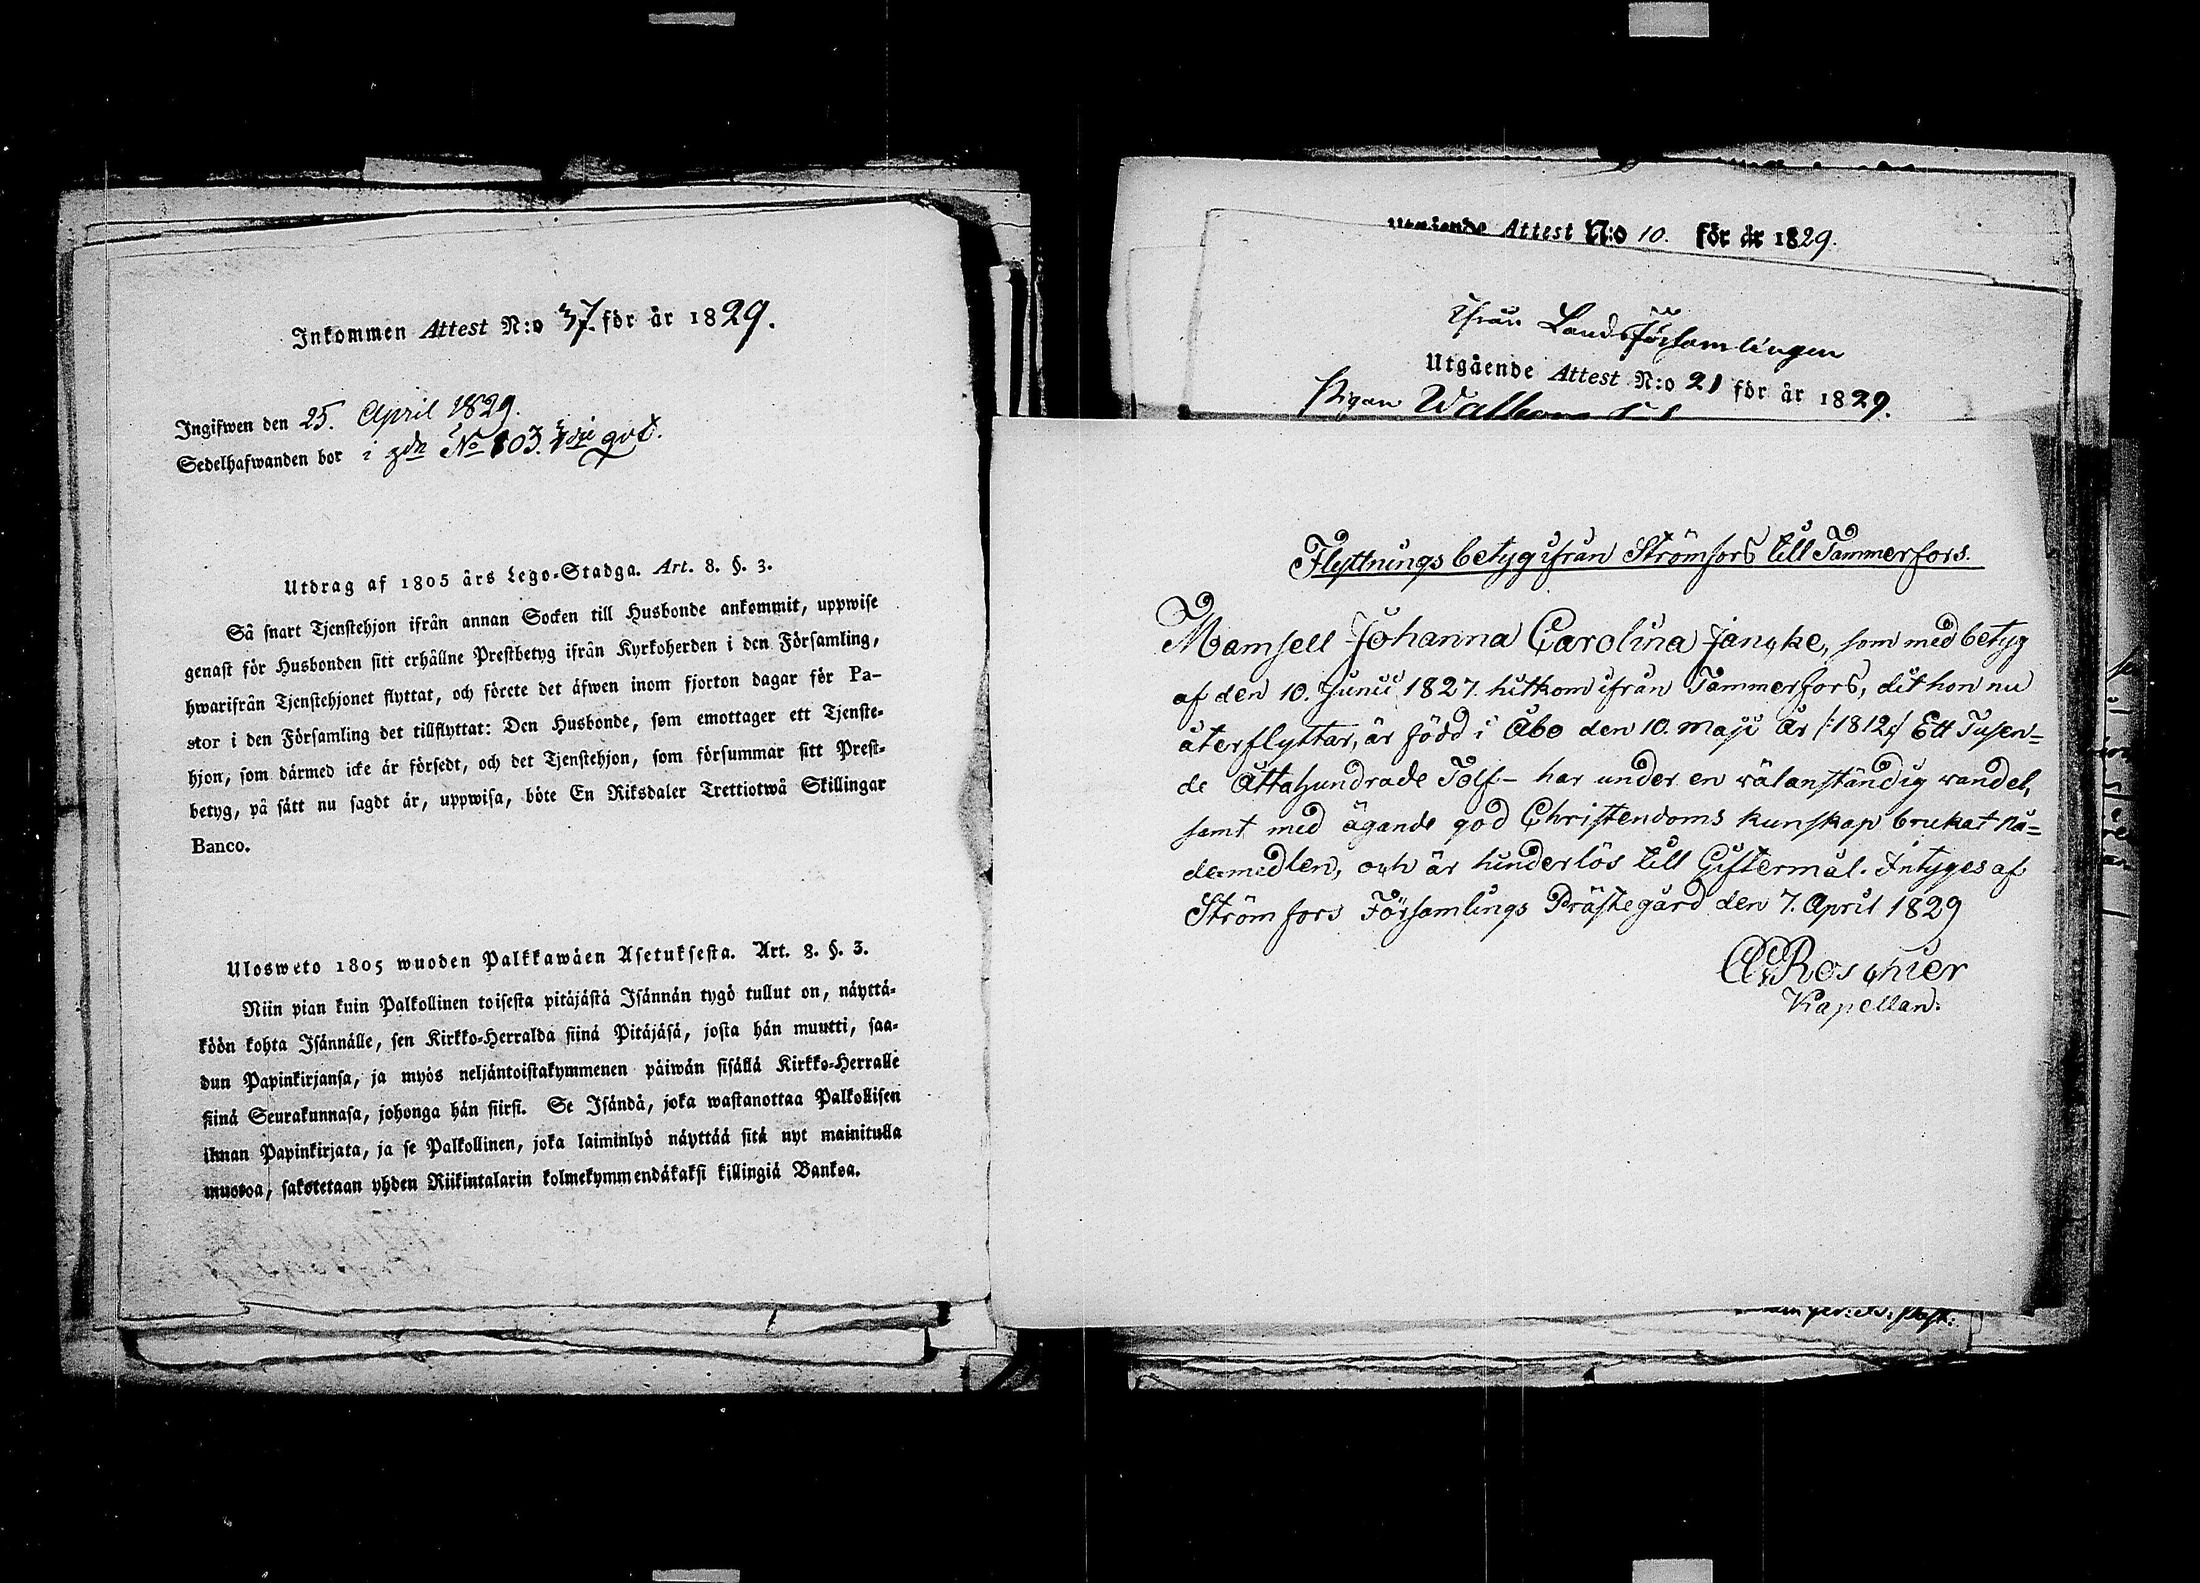 Inkommen Attest N:o 37. för år 1829.
Ingifwen den 25. April 1829.
Sedelhafwanden bor i gdn No 103. qvt.
Utdrag af 1805 års Lego-Stadga. Art. 8. §. 3.
Så snart Tjenstehjon ifrån annan Socken till Husbonde ankommit, uppwise
genast för Husbonden sitt erhållne Prestbetyg ifrån Kyrkoherden i den Församling,
hwarifrån Tjenstehjonet flyttat, och förete det äfwen inom fjorton dagar för Pa-
stor i den Församling det tillflyttat: Den Husbonde, som emottager ett Tjenste-
hjon, som därmed icke är försedt, och det Tjenstehjon, som försummar sitt Prest-
betyg, på sätt nu sagdt är, uppwisa, böte En Riksdaler Trettiotwå Skillingar
Banco.
Ulosweto 1805 wuoden Palkkawäen Asetuksesta. Art. 8. §. 3.
Niin pian kuin Palkollinen toisesta pitäjästä Isännän tygö tullut on, näyttä-
köön kohta Isännälle, sen Kirkko-Herralda siinä Pitäjäsä, josta hän muutti, saa-
dun Papinkirjansa, ja myös neljäntoistakymmenen päiwän sisällä Kirkko-Herralle
siinä Seurakunnasa, johonga hän siirsi. Se Isändä, joka wastanottaa Palkollisen
ilman Papinkirjata, ja se Palkollinen, joka laiminlyö näyttää sitä nyt mainitulla
muotoa, sakotetaan yhden Riikintalarin kolmekymmendäkaksi killingiä Bankoa.
Utgående Attest N:o 10. för år 1829.
Ifrån Landsförsamlingen
Utgående Attest N:o 21 för år 1829.
Pigan
Flyttningsbetyg ifrån Strömfors till Tammerfors.
Mamsell Johanna Carolina Jancke, som med betyg
af den 10. Junii 1827. hitkom ifrån Tammerfors, dit hon nu
återflyttar, är född i Åbo den 10. Maji År /:1812:/ Ett Tusen=
de Åttahundrade Tolf- har under en välanständig vandel,
samt med ägande god Christendoms kunskap brukat Nå=
demedlen, och är hinderlös till Giftermål. Intyges af
Strömfors Församlings Prästegård den 7. April 1829
A Roschier
Kapellan.